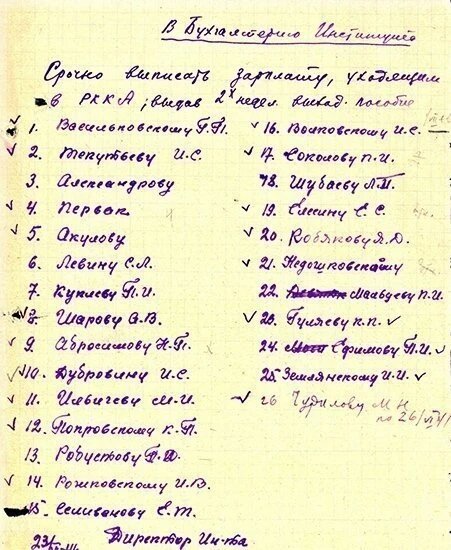 В Бухгалтерию Института
Срочно выписать зарплату, уходящим
в РККА, выдав 2х недел. выход. пособие
1. Васильковскому Г.П.
2. Тепутьеву И.С.
3. Александрову
4. Первак
5. Акулову
6. Левину С.Л.
7. Куклеву П.И.
8. Шарову А.В.
9. Абросимову Н.П.
10. Дубровину И.С.
11. Ильичеву М.И.
12. Покровскому К.П.
13. Робустову П.Д.
14. Рожковскому И.В.
15. Селиванову Е.Т.
16. Волковскому И.С.
17. Соколову П.И.
18. Шубаеву Л.П.
19. Елесину Е.С.
20. Кобякову Я.Д.
21. Недошковскому
22. Мальцеву П.И.
23. Гуляеву К.П.
24. Ефимову П.И.
25. Землянскому И.И.
26 Чудилову М Н
по 26/VI 41
23/
Директор Ин-та